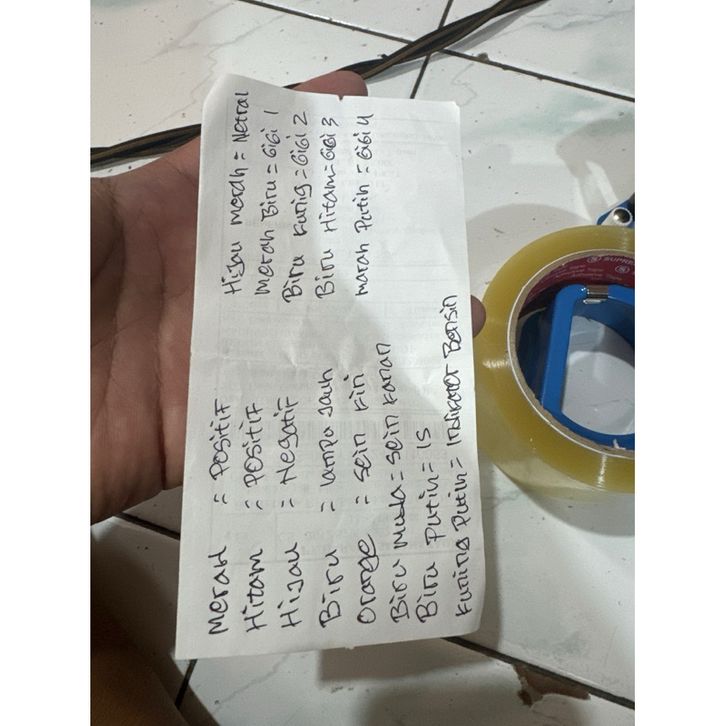 Merah = Positif
Hitam = Positif
Hijau = Negatif
Biru = lampu Jauh
Orange = Sein Kiri
Biru Muda = Sein Kanan
Biru Putih = IS
Kuning Putih = Indikator Bensin
Hijau merah = Netral
Merah Biru = Gigi 1
Biru Kunig = Gigi 2
Biru Hitam = Gigi 3
Marah Putih = Gigi 4
SUPRE